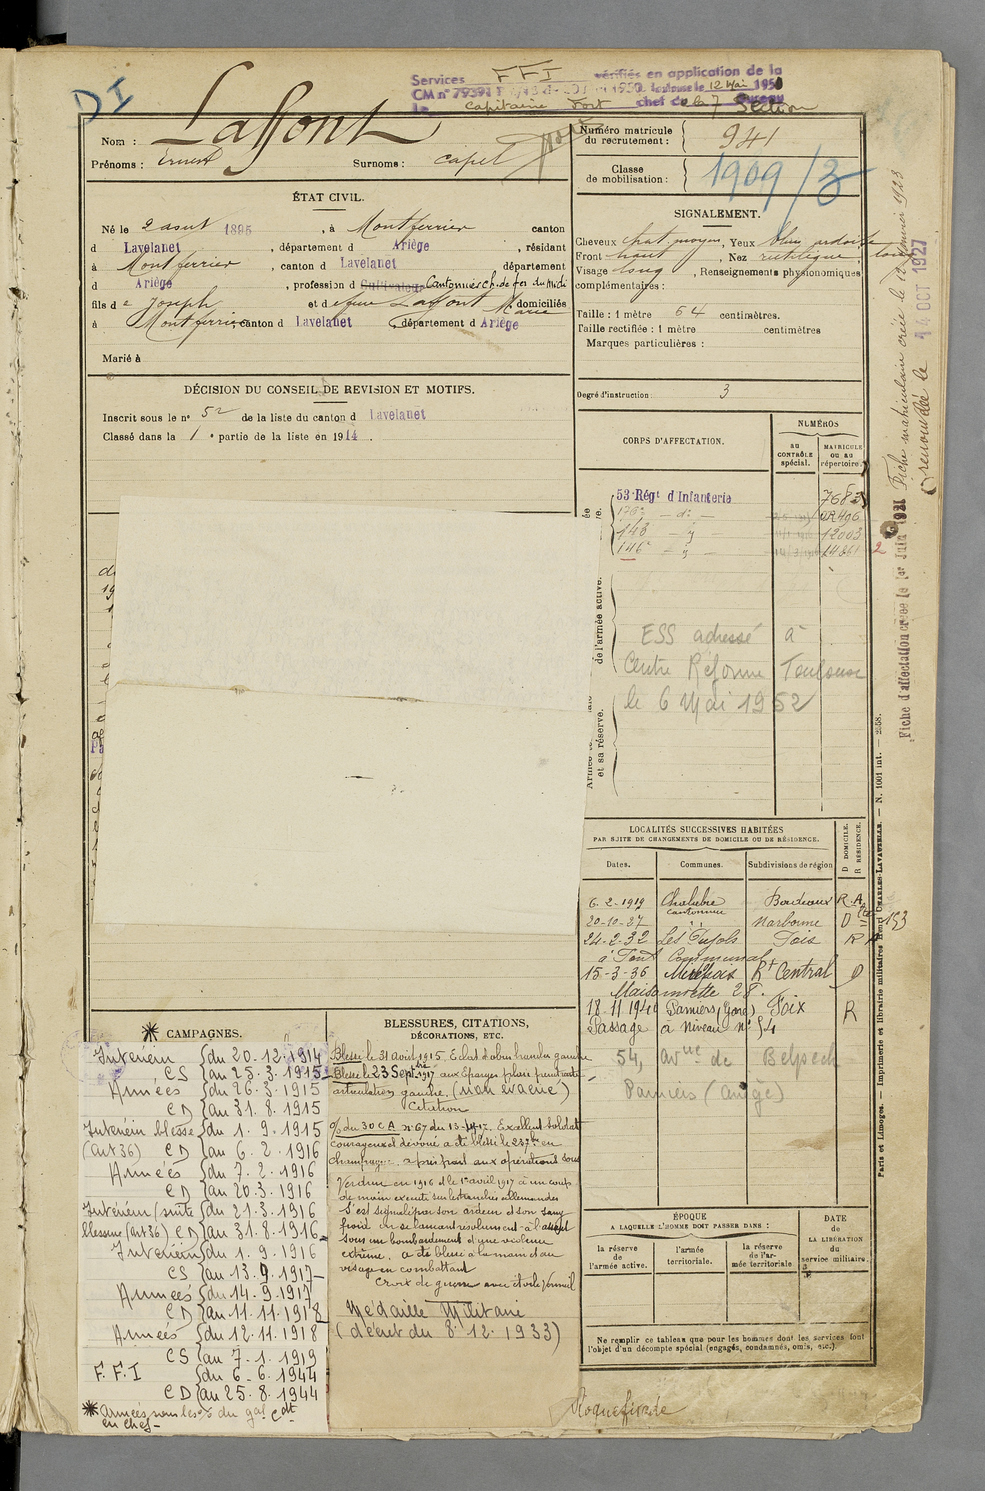 D I
Services FFI vérifiés en application de la
CM n° 79391 1950. Toulouse le 12 Mai 1950
Le Capitaine Fort chef de la 7 Section
Nom : Laffont
Prénoms : Ernest Surnoms : Capel
Numéro matricule du recrutement : 941
Classe de mobilisation : 1909/3
ÉTAT CIVIL.
Né le 2 août 1895, à Montferrier canton
d Lavelanet, département d Ariège, résidant
à Montferrier, canton d Lavelanet département
d Ariège, profession d Cultivateur Cantonnier ch. de fer du Midi
fils de Joseph et de feue Laffont Marie domiciliés
à Montferrier canton d Lavelanet, département d Ariège
Marié à
DÉCISION DU CONSEIL DE REVISION ET MOTIFS.
Inscrit sous le n° 52 de la liste du canton d Lavelanet
Classé dans la 1e partie de la liste en 1914.
SIGNALEMENT.
Cheveux chat. moyen, Yeux bleu ardoisé
Front haut, Nez rectiligne
Visage long, Renseignements physionomiques
complémentaires :
Taille : 1 mètre 64 centimètres.
Taille rectifiée : 1 mètre centimètres
Marques particulières :
Degré d'instruction : 3
CORPS D'AFFECTATION.
NUMÉROS
au CONTRÔLE spécial.
MATRICULE ou au répertoire.
53e Régt d'Infanterie 7683
176e — d° —
143 — " — 12003
146e — " —
2
de l'armée active.
et sa réserve.
ESS adressé à
Centre Réforme Toulouse
le 6 Mai 1952
Fiche matriculaire créée le 12 janvier 1923
renouvelée le 14 OCT 1927
Fiche d'affectation créée le 1er Juin 1931
LOCALITÉS SUCCESSIVES HABITÉES
PAR SUITE DE CHANGEMENTS DE DOMICILE OU DE RÉSIDENCE.
D DOMICILE.
R RÉSIDENCE.
Dates. Communes. Subdivisions de région
6-2-1919 Chalabre Bordeaux R.A.
cantonnier
20-10-27 " " Narbonne D 153
24-2-32 Les Pujols Foix R
à Pont Communal
15-3-36 Mirepoix Rt Central D
Maisonnette 28.
18.11.1940 Pamiers (Gare) Foix R
Passage à Niveau n° 54
54, Avnue de Belpech
Pamiers (Ariège)
CAMPAGNES.
Intérieur {du 20.12.1914
CS {au 25.3.1915
Armées {du 26.3.1915
CD {au 31.8.1915
Intérieur blessé {du 1.9.1915
(art 36) CD {au 6.2.1916
Armées {du 7.2.1916
CD {au 20.3.1916
Intérieur (suite {du 21.3.1916
blessure (art 36) CD {au 31.8.1916
Intérieur {du 1.9.1916
CS {au 13.9.1917
Armées {du 14.9.1917
CD {au 11.11.1918
Armées {du 12.11.1918
CS {au 7.1.1919
F.F.I {du 6-6.1944
CD {au 25.8.1944
Armées sous les o/ du gal Cdt
en chef
BLESSURES, CITATIONS,
DÉCORATIONS, ETC.
Blessé le 31 août 1915. Eclat d'obus hanche gauche
Blessé le 23 Septbre 1917 aux Eparges plaie pénétrante
articulation gauche. (non évacué)
Citation
O/ du 30 CA n° 67 du 13-4-17. Excellent soldat
courageux et dévoué a été blessé le 23 7bre en
Champagne, a pris part aux opérations sous
Verdun en 1916 et le 1er avril 1917 à un coup
de main exécuté sur les tranchées allemandes
s'est signalé par son ardeur et son sang
froid en se lançant résolument à l'assaut
sous un bombardement d'une violence
extrême, a été blessé à la main et au
visage en combattant
Croix de guerre avec étoile Vermeil
Médaille Militaire
(décret du 8.12.1933)
ÉPOQUE
A LAQUELLE L'HOMME DOIT PASSER DANS :
la réserve de l'armée active.
l'armée territoriale.
la réserve de l'armée territoriale
DATE de LA LIBÉRATION du service militaire.
Ne remplir ce tableau que pour les hommes dont les services font
l'objet d'un décompte spécial (engagés, condamnés, omis, etc.).
Paris et Limoges. — Imprimerie et librairie militaires Henri CHARLES-LAVAUZELLE. — N. 1001 int. — 2558.